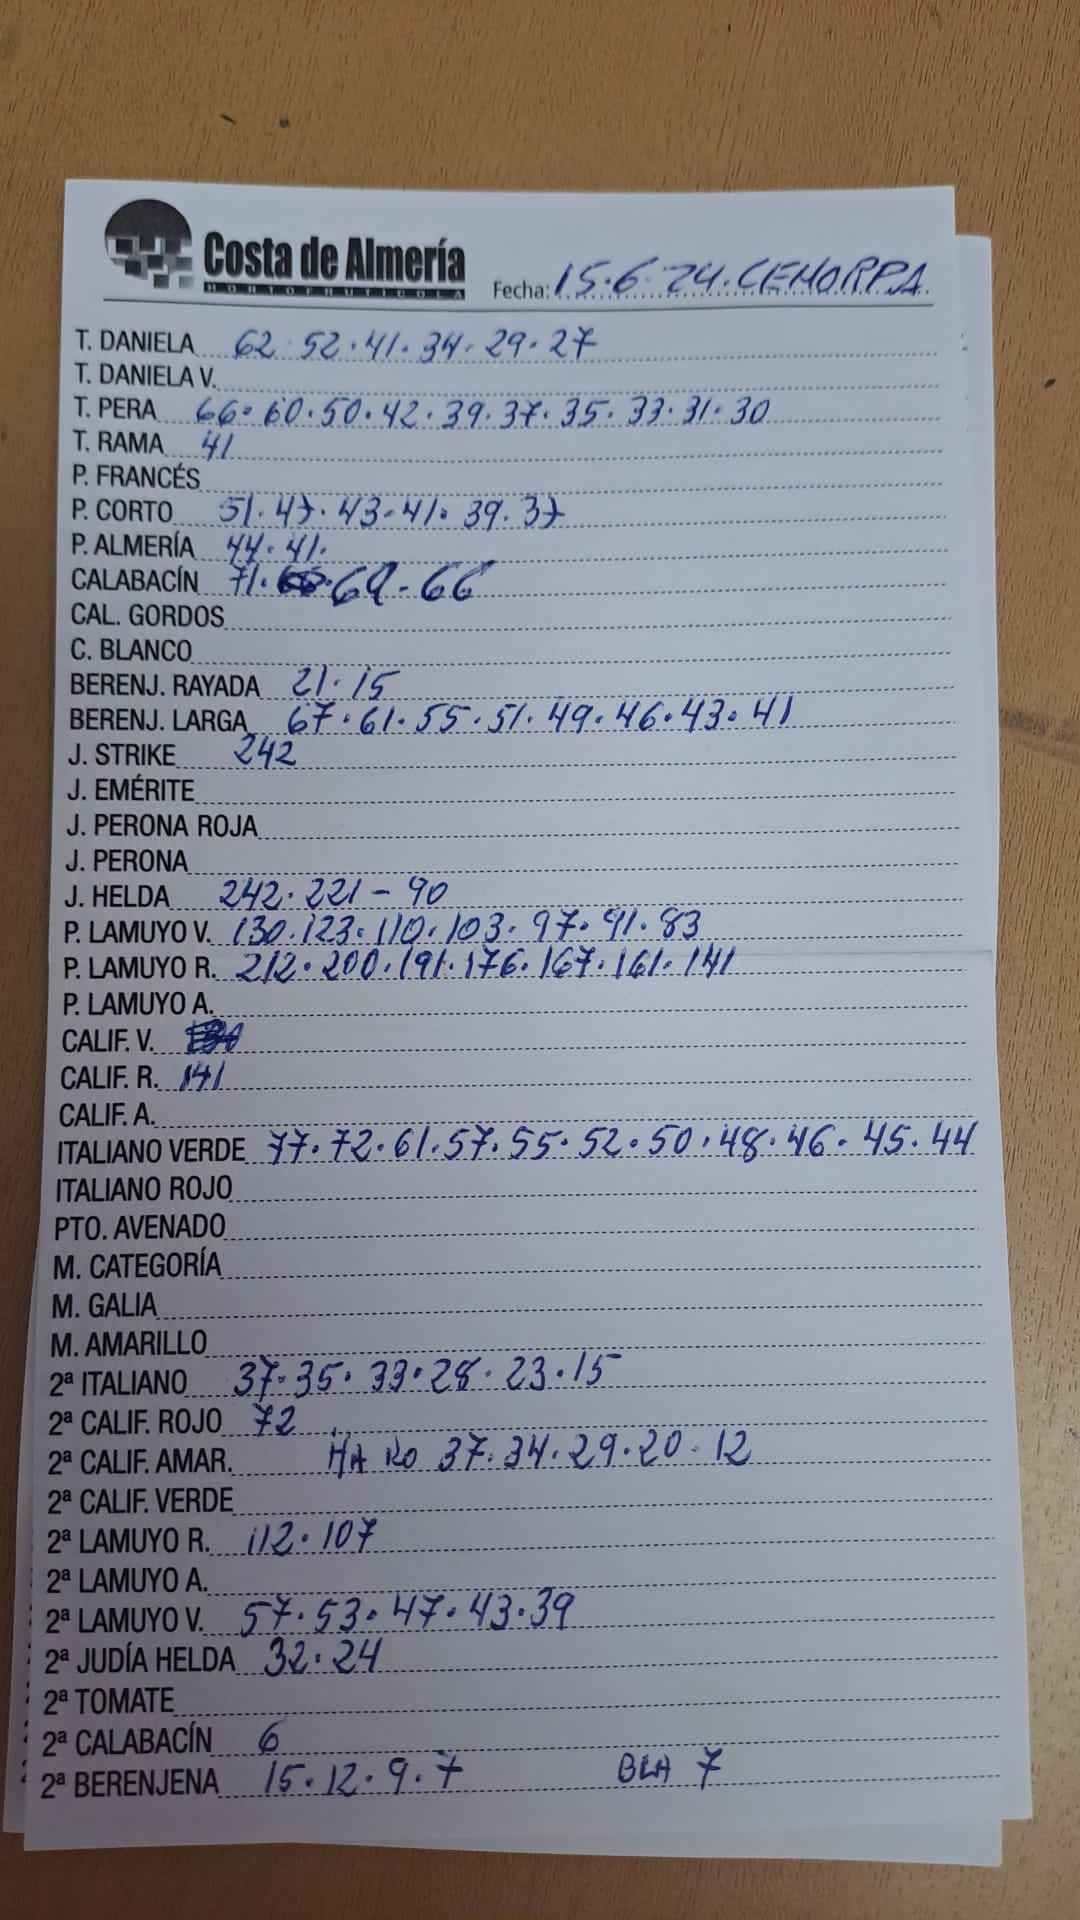 Costa de Almería
HORTOFRUTICOLA
Fecha: 15.6.24.CEHORPA
T. DANIELA 62 52.41.34.29.27
T. DANIELA V.
T. PERA 66.60.50.42.39.37.35.33.31.30
T. RAMA 41
P. FRANCÉS
P. CORTO 51.47.43.41.39.37
P. ALMERÍA 44.41.
CALABACÍN 71. 69-66
CAL. GORDOS
C. BLANCO
BERENJ. RAYADA 21.15
BERENJ. LARGA 67.61.55.51.49.46.43.41
J. STRIKE 242
J. EMÉRITE
J. PERONA ROJA
J. PERONA
J. HELDA 242.221-90
P. LAMUYO V. 130.123.110.103.97.91.83
P. LAMUYO R. 212.200.191.176.167.161.141
P. LAMUYO A.
CALIF. V.
CALIF. R. 141
CALIF. A.
ITALIANO VERDE 77.72.61.57.55.52.50.48.46.45.44
ITALIANO ROJO
PTO. AVENADO
M. CATEGORÍA
M. GALIA
M. AMARILLO
2ª ITALIANO 37.35.33.28.23.15
2ª CALIF. ROJO 72
2ª CALIF. AMAR. HA RO 37.34.29.20.12
2ª CALIF. VERDE
2ª LAMUYO R. 112.107
2ª LAMUYO A.
2ª LAMUYO V. 57.53.47.43.39
2ª JUDÍA HELDA 32.24
2ª TOMATE
2ª CALABACÍN 6
2ª BERENJENA 15.12.9.7 BLA 7